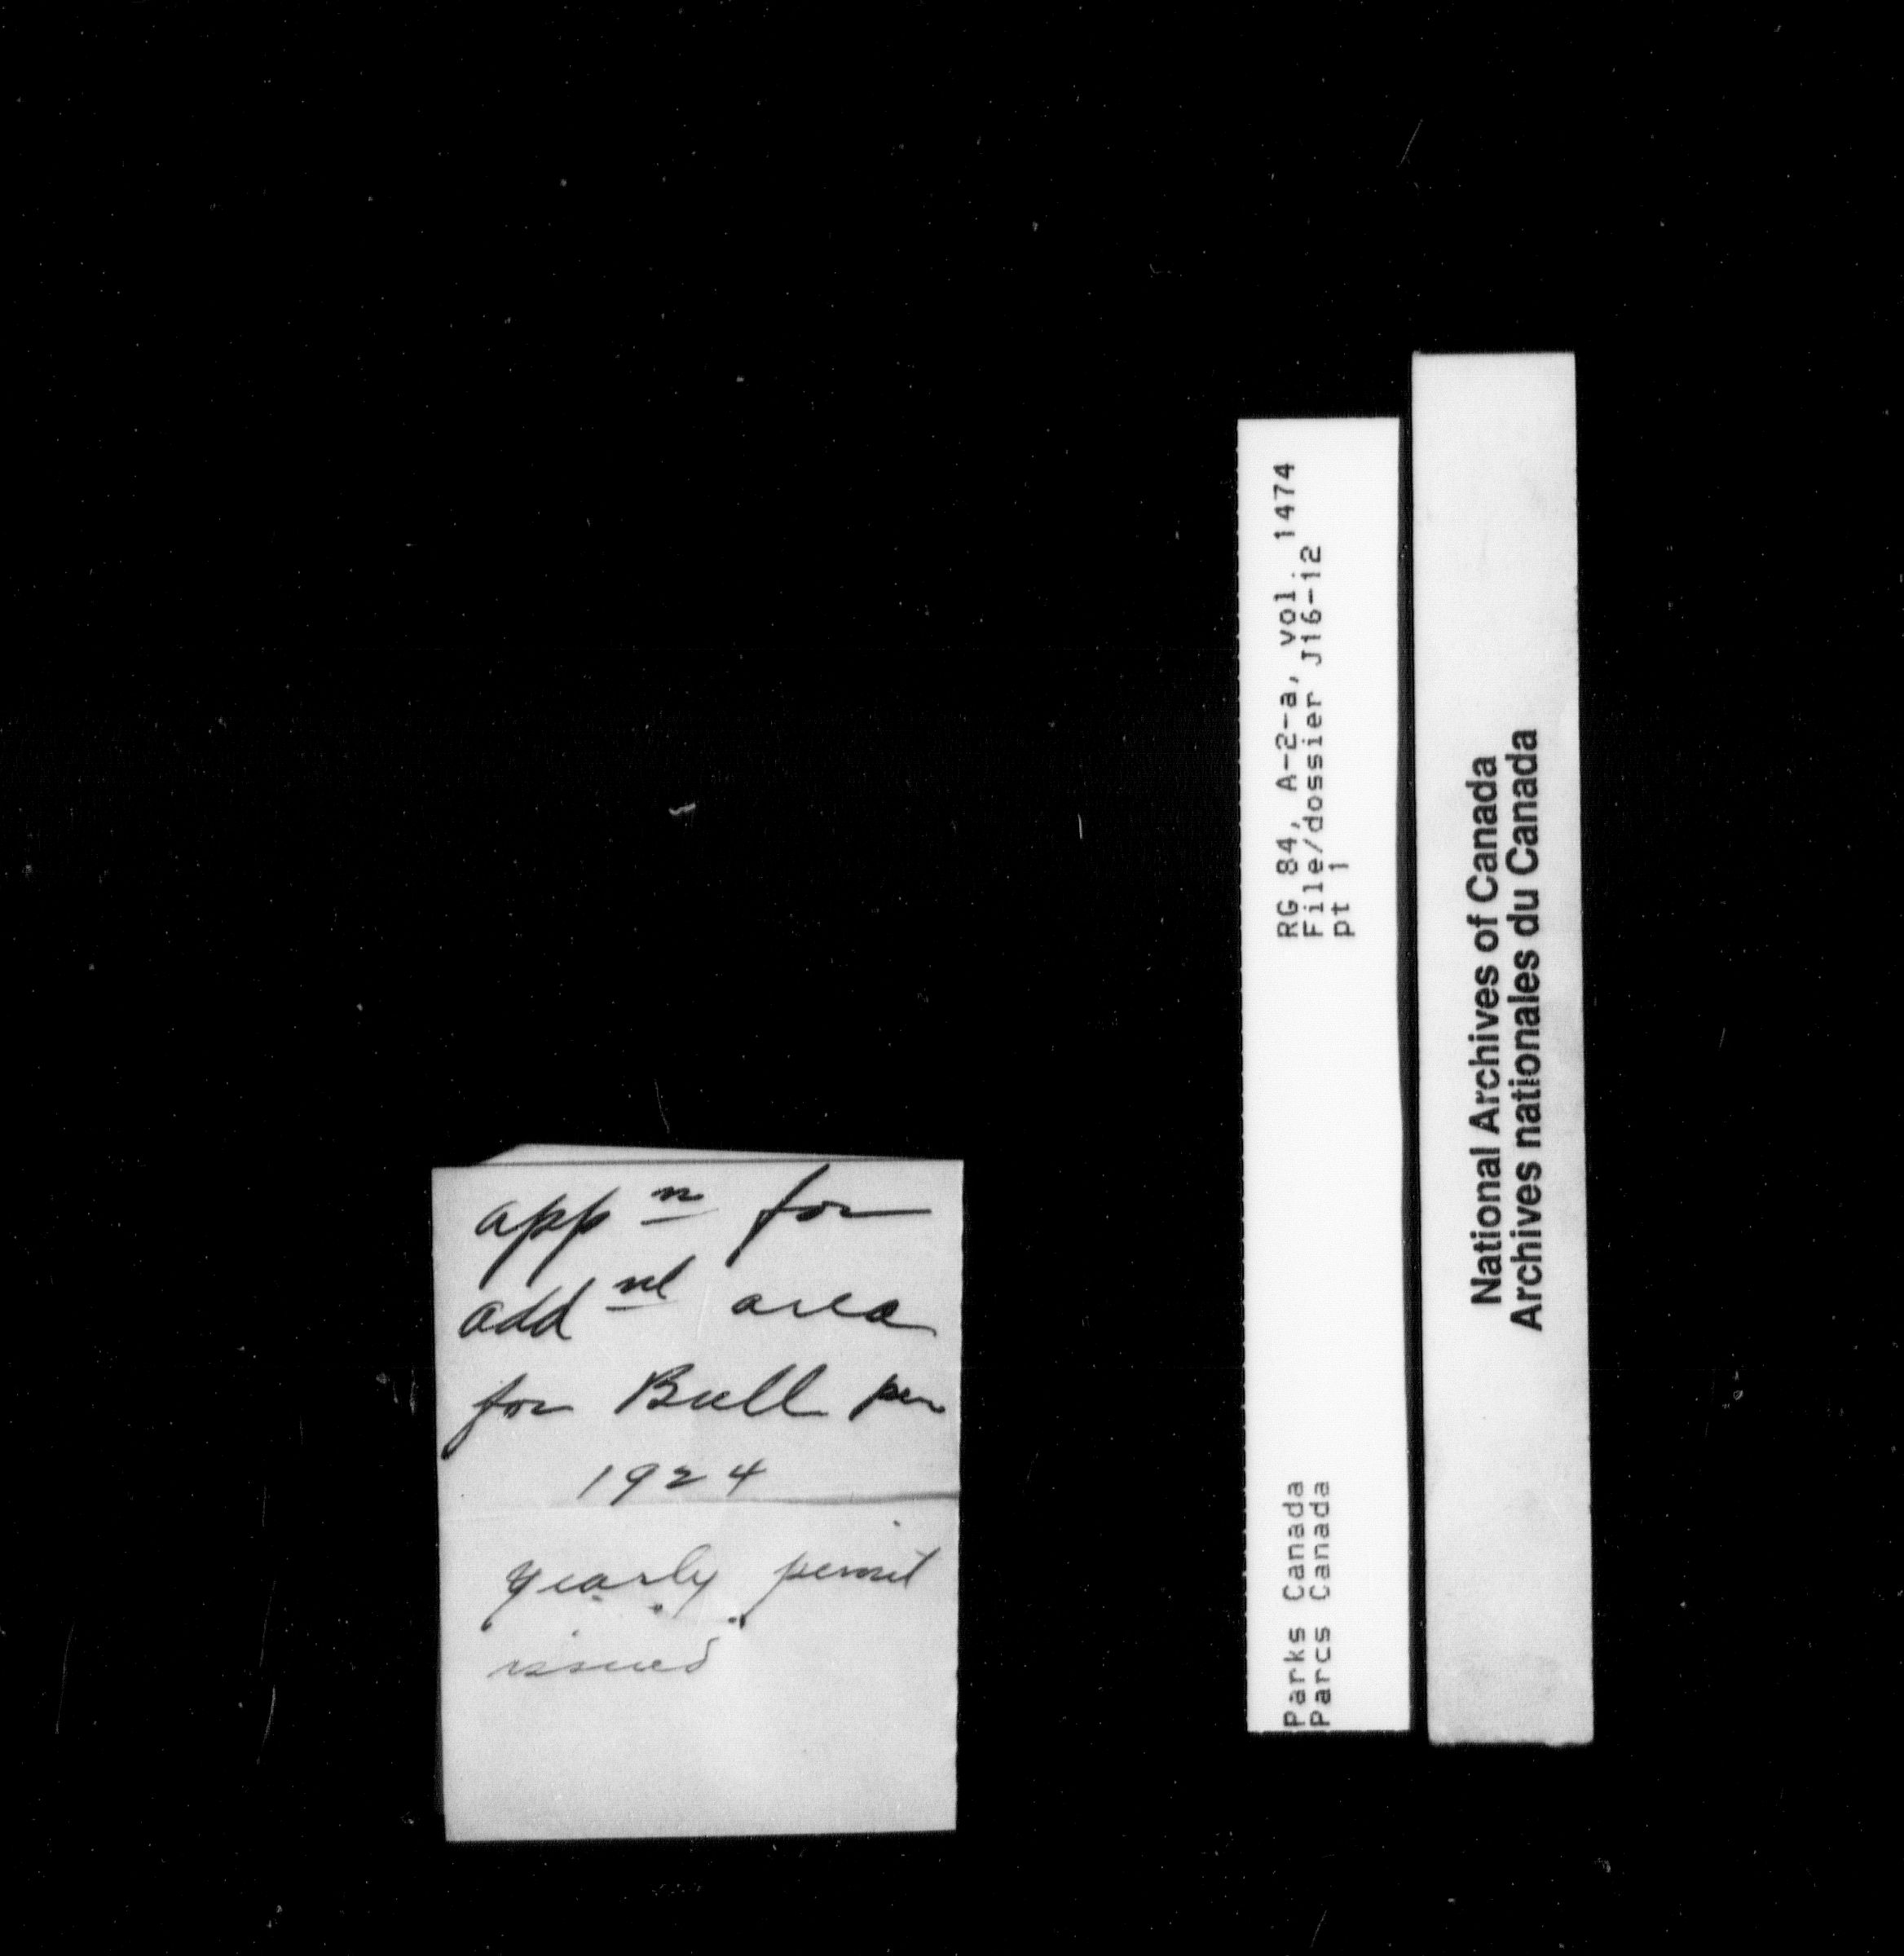 app n for
add nl area
for Bull pen
1924
yearly permit
issued
RG 84, A-2-a, vol. 1474
File/dossier J16-12
pt 1
Parks Canada
Parcs Canada
National Archives of Canada
Archives nationales du Canada